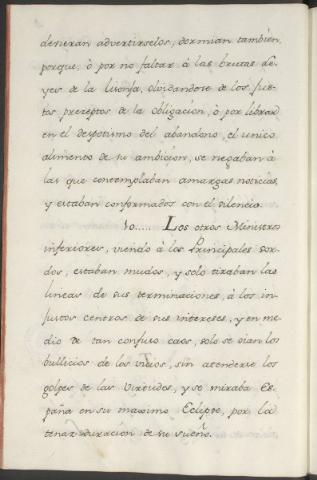 devieran advertirselos, dormian tambien,
porque, ò por no faltar à las brutas le-
yes de la lisonja, olvidandose de los jus-
tos preceptos de la obligacion, ò por librar
en el despotismo del abandono, el unico
alimento de su ambicion, se negaban à
las que contemplaban amargas noticias,
y estaban conformados con el silencio.
10..... Los otros Ministros
inferiores, viendo à los Principales sor-
dos, estaban mudos, y solo tiraban las
lineas de sus terminaciones, à los in-
justos centros de sus intereses, y en me-
dio de tan confuso caos, solo se oian los
bullicios de los vicios, sin atenderse los
golpes de las Virtudes, y se miraba Es-
paña en su maximo Eclipse, por la
tenaz duracion de su sueño.